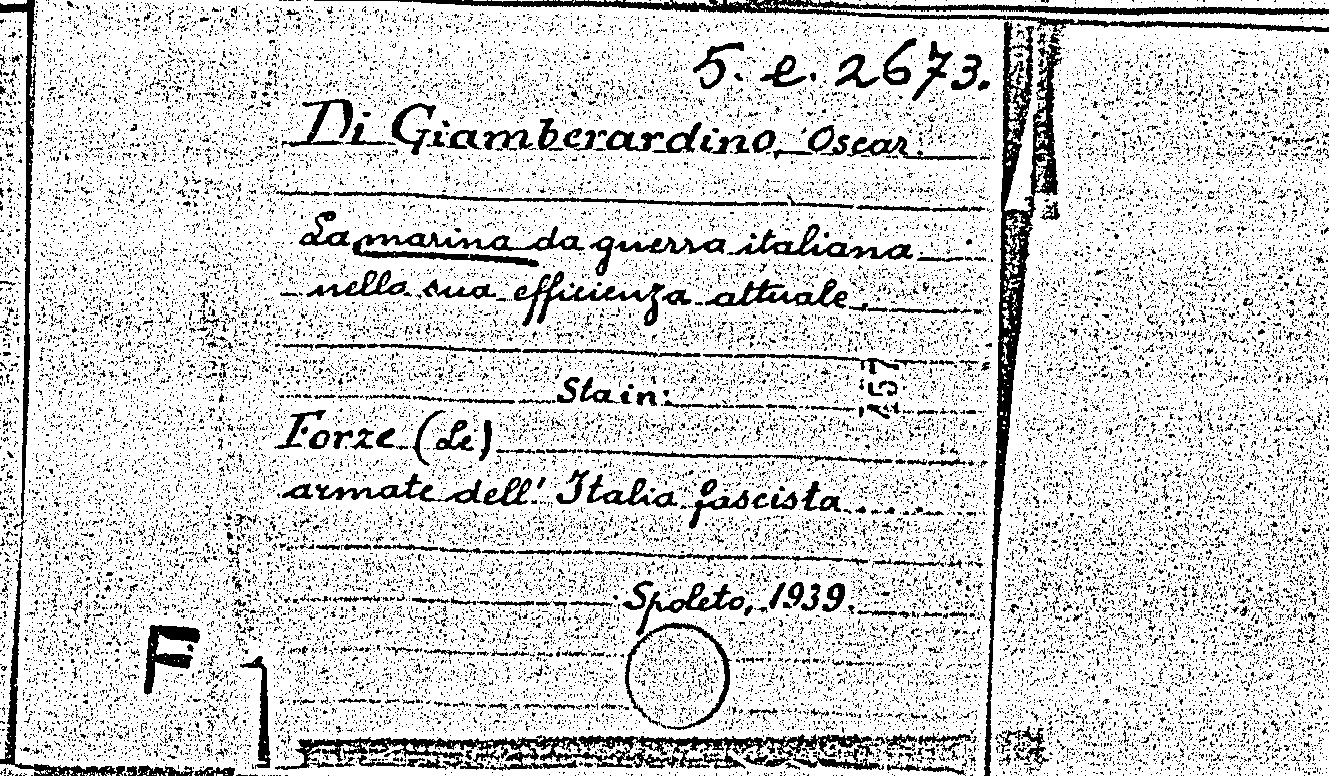 5. e. 2673.
Di Giamberardino, Oscar.
La marina da guerra italiana
nella sua efficienza attuale.
Sta in:
257
Forze (Le)
armate dell' Italia fascista....
Spoleto, 1939.
F 1